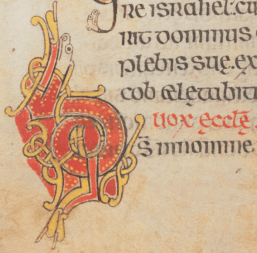 re israhel:cu
rit dominus
plebis suę.ex
cob ęlętabit
uox ęcclę
S̄ innomine.